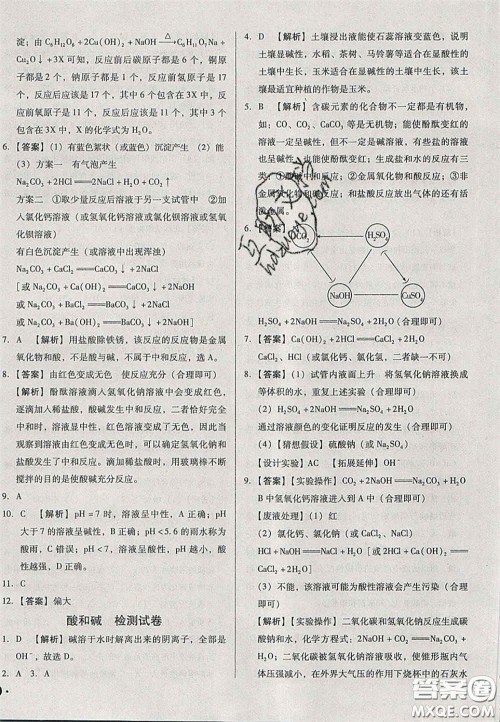 淀;由 C₆H₁₂O₆ + 2Cu(OH)₂ + NaOH —△→ C₆H₁₁O₇Na +
Cu₂O↓ + 3X 可知,反应前后碳原子都是 6 个,铜原
子都是 2 个,钠原子都是 1 个,反应前氢原子是 17
个,反应后应该是 17 个,其中 6 个包含在 3X 中,反
应前氧原子是 11 个,反应后应该是 11 个,其中 3 个
包含在 3X 中,X 的化学式为 H₂O。
6. 【答案】(1)有蓝色絮状(或蓝色)沉淀产生 (2)(能
(3)方案一 有气泡产生
Na₂CO₃ + 2HCl══2NaCl + H₂O + CO₂↑
方案二 ①取少量反应后溶液于另一支试管中 ②加
入氯化钙溶液(或氢氧化钙溶液或氯化钡溶液或氢氧
化钡溶液)
有白色沉淀产生(或溶液中出现浑浊)
Na₂CO₃ + CaCl₂══CaCO₃↓ + 2NaCl
[或 Na₂CO₃ + Ca(OH)₂══CaCO₃↓ + 2NaOH
或 Na₂CO₃ + BaCl₂══BaCO₃↓ + 2NaCl
或 Na₂CO₃ + Ba(OH)₂══BaCO₃↓ + 2NaOH]
7. A 【解析】用盐酸除铁锈,该反应的反应物是金属
氧化物和酸,不是中和反应,故选 A。
8. 【答案】红色变成无色 使反应充分(合理即可)
【解析】酚酞溶液滴入氢氧化钠溶液中会变成红色,
逐滴加入稀盐酸,盐酸与氢氧化钠发生中和反应,当
酸和碱恰好完全反应时,溶液会变成无色,因此如果
观察到溶液由红色变成无色时,可以确定氢氧化钠和
盐酸发生了中和反应;实验中边滴加稀盐酸边不断搅
拌的目的是使酸碱充分反应。
9. A
10. C 【解析】pH = 7 时,溶液呈中性,A 正确;pH 大
于 7 的溶液呈碱性,B 正确;pH < 5.6 的雨水称为
酸雨,C 错误;pH < 7,溶液呈酸性,pH 越小,酸
性越强,D 正确。
11. C
12. 【答案】偏大
酸和碱 检测试卷
1. D 【解析】碱溶于水时解离出来的阴离子,全部是
OH⁻,故选 D。
2. A 3. A
4. D 【解析】土壤浸出液能使石蕊溶液变蓝色,说明
显碱性,水稻、茶树、马铃薯等适合在显酸性的
土壤中生长,玉米适合在显碱性的土壤中生长,故
选 D。
5. B 【解析】含碳元素的化合物不一定都是有机物,
如:CO、CO₂、CO₃²⁻等;能使酚酞变红色的
溶液一定呈碱性,碱性溶液一定能使酚酞变红;
生成盐和水的反应不一定是中和反应,如:非
金属氧化物和碱反应;与盐酸反应放出气体的不一
6. 【答案】
CO₂ H₂SO₄
NaOH CuSO₄
H₂SO₄ + 2NaOH══Na₂SO₄ + 2H₂O(合理即可)
7. 【答案】Ca(OH)₂ + 2HCl══CaCl₂ + 2H₂O
CaCl₂、HCl(或氯化钙、氯化氢)(合理即可)
8. 【答案】(1)试管内液面上升 将氢氧化钠溶液换成
等体积的水,重复上述实验(合理即可)
(2)H₂SO₄ + 2NaOH══Na₂SO₄ + 2H₂O
通过溶液颜色的变化证明反应发生(合理即可)
(4)【猜想假设】硫酸钠(或 Na₂SO₄)
【设计实验】AC 【拓展延伸】OH⁻
9. 【答案】【实验操作】二氧化碳、氢氧化钠溶液进入
B 中氢氧化钙溶液里(合理即可)
【废液处理】(1)红
(2)氯化钙、氯化钠(或 CaCl₂、NaCl)
HCl + NaOH══NaCl + H₂O
[或 2HCl + Ca(OH)₂══CaCl₂ + 2H₂O]
(3)不能,该废液可能会产生污染(合理即可)
【解析】【实验操作】二氧化碳和氢氧化钠反应生成
碳酸钠和水,化学方程式:CO₂ + 2NaOH══
Na₂CO₃ + H₂O;二氧化碳被氢氧化钠吸收,使锥形瓶内气
体压强减小,在外界大气压的作用下烧杯中的石灰
答案圈
MXQE.COM